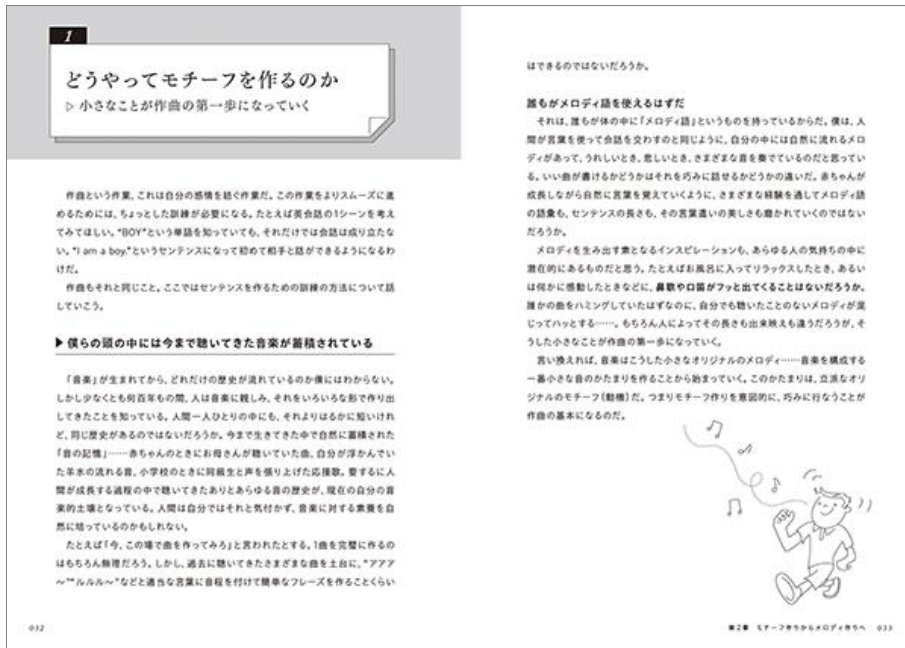 1
どうやってモチーフを作るのか
▷ 小さなことが作曲の第一歩になっていく
作曲という作業、これは自分の感情を紡ぐ作業だ。この作業をよりスムーズに進
めるためには、ちょっとした訓練が必要になる。たとえば英会話の1シーンを考え
てみてほしい。“BOY”という単語を知っていても、それだけでは会話は成り立たな
い。“I am a boy.”というセンテンスになって初めて相手と話ができるようになるわ
けだ。
作曲もそれと同じこと。ここではセンテンスを作るための訓練の方法について話
していこう。
▶ 僕らの頭の中には今まで聴いてきた音楽が蓄積されている
「音楽」が生まれてから、どれだけの歴史が流れているのか僕にはわからない。
しかし少なくとも何百年もの間、人は音楽に親しみ、それをいろいろな形で作り出
してきたことを知っている。人間一人ひとりの中にも、それよりはるかに短いけれ
ど、同じ歴史があるのではないだろうか。今まで生きてきた中で自然に蓄積された
「音の記憶」……赤ちゃんのときにお母さんが聴いていた曲、自分が浮かんでい
た羊水の流れる音、小学校のときに同級生と声を張り上げた応援歌。要するに人
間が成長する過程の中で聴いてきたありとあらゆる音の歴史が、現在の自分の音
楽的土壌となっている。人間は自分ではそれと気付かず、音楽に対する素養を自
然に培っているのかもしれない。
たとえば「今、この場で曲を作ってみろ」と言われたとする。1曲を完璧に作るの
はもちろん無理だろう。しかし、過去に聴いてきたさまざまな曲を土台に、“アアア
〜”“ルルル〜”などと適当な言葉に音程を付けて簡単なフレーズを作ることくらい
032
はできるのではないだろうか。
誰もがメロディ語を使えるはずだ
それは、誰もが体の中に「メロディ語」というものを持っているからだ。僕は、人
間が言葉を使って会話を交わすのと同じように、自分の中には自然に流れるメロ
ディがあって、うれしいとき、悲しいとき、さまざまな音を奏でているのだと思ってい
る。いい曲が書けるかどうかはそれを巧みに話せるかどうかの違いだ。赤ちゃんが
成長しながら自然に言葉を覚えていくように、さまざまな経験を通してメロディ語
の語彙も、センテンスの長さも、その言葉遣いの美しさも磨かれていくのではない
だろうか。
メロディを生み出す素となるインスピレーションも、あらゆる人の気持ちの中に
潜在的にあるものだと思う。たとえばお風呂に入ってリラックスしたとき、あるい
は何かに感動したときなどに、鼻歌や口笛がフッと出てくることはないだろうか。
誰かの曲をハミングしていたはずなのに、自分でも聴いたことのないメロディが混
じってハッとする……。もちろん人によってその長さも出来映えも違うだろうが、そ
うした小さなことが作曲の第一歩になっていく。
言い換えれば、音楽はこうした小さなオリジナルのメロディ……音楽を構成する
一番小さな音のかたまりを作ることから始まっていく。このかたまりは、立派なオリ
ジナルのモチーフ（動機）だ。つまりモチーフ作りを意図的に、巧みに行なうことが
作曲の基本になるのだ。
第2章 モチーフ作りからメロディ作りへ 033